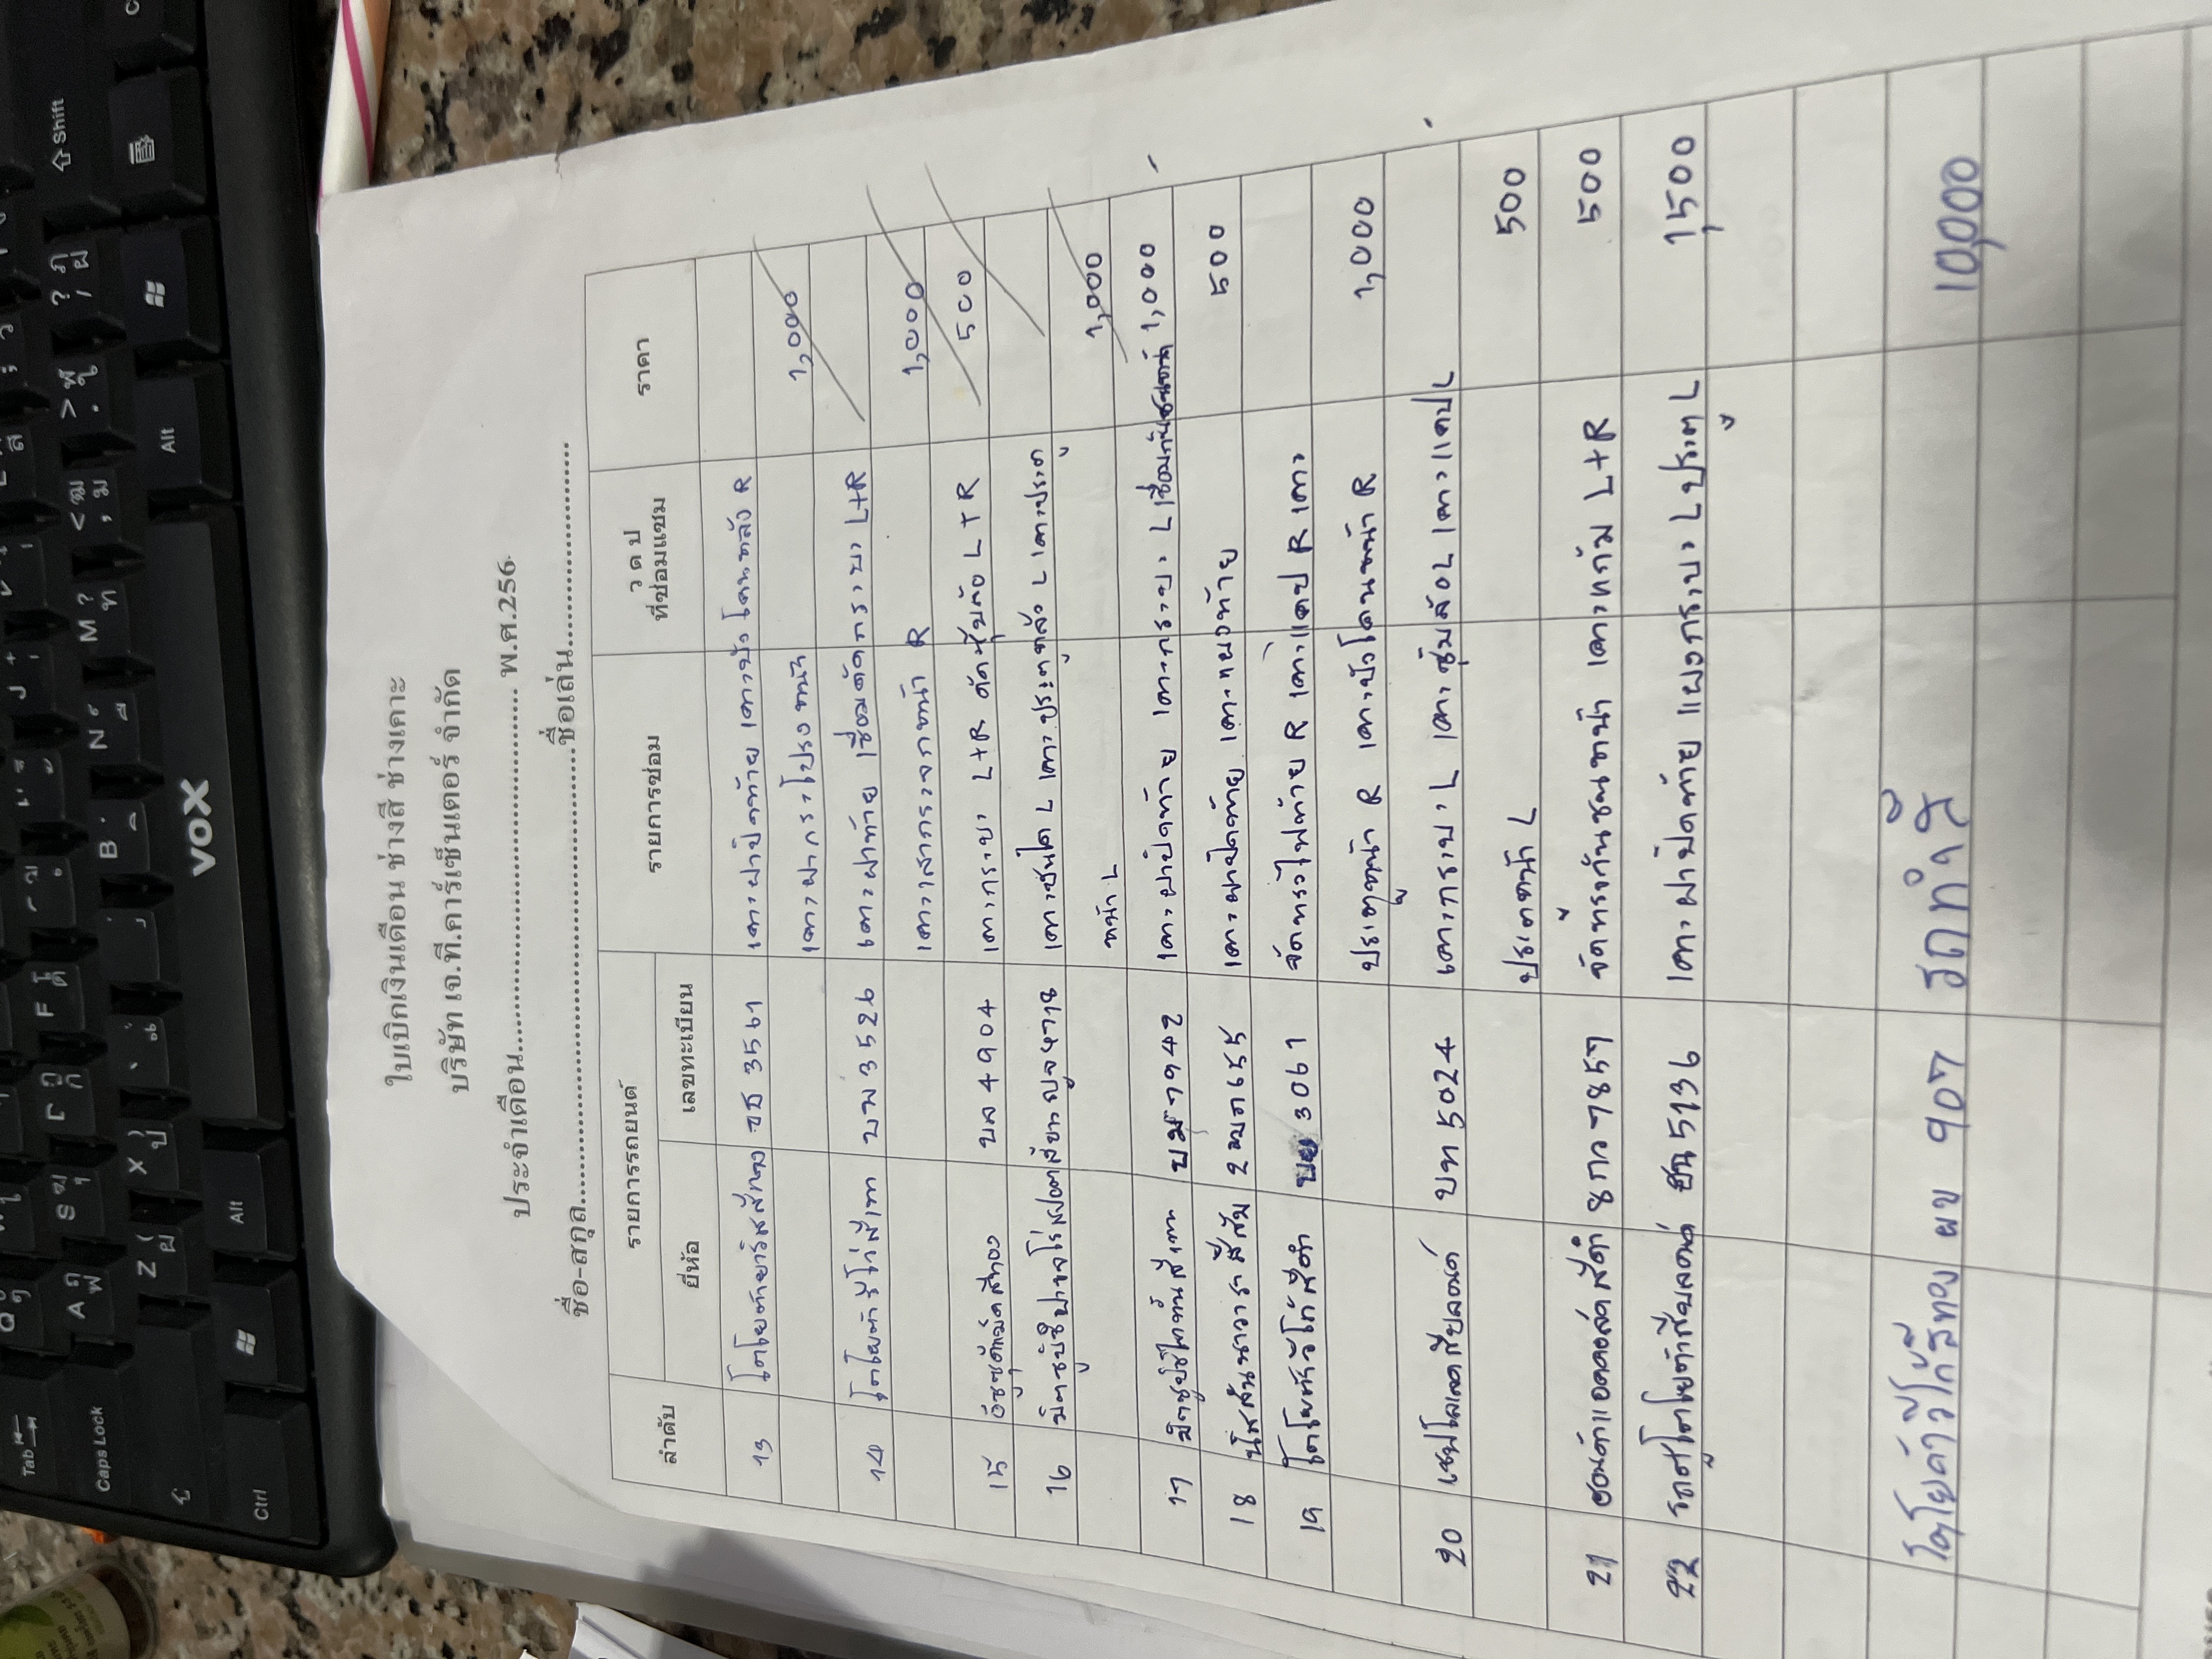 ใบเบิกเงินเดือน ช่างสี ช่างเคาะ
บริษัท เจ.ที.คาร์เซ็นเตอร์ จำกัด
ประจำเดือน........................................ พ.ศ.256
ชื่อ-สกุล........................................ชื่อเล่น........................
ลำดับ รายการรถยนต์ รายการซ่อม ว ด ป ที่ซ่อมแซม ราคา
ยี่ห้อ เลขทะเบียน
13 โตโยต้ายาริสสีทอง ขธ 3561 เคาะฝาปิดท้าย เคาะบัวโคนหลัง R
เคาะฝากระโปรงหน้า 1,000
14 โตโยต้าวีโก้สีเทา บพ 3526 เคาะฝาท้าย เชื่อมตัดกระบะ L+R
เคาะเสากระจกหน้า R 1,000
15 อีซูซุดีแม็คสีทอง บล 4904 เคาะกระบะ L+R ตัดซุ้มล้อ L+R 500
16 มิตซูบิชิปาเจโร่สปอต เคาะบันได L เคาะประตูหลัง L เคาะประตู
หน้า L 1,000
17 มิตซูบิชิไทรทันสีเทา บม 7942 เคาะฝาปิดท้าย เคาะกระบะ L เชื่อมกันชนหน้า 1,000
18 นิสสันนาวาราสีส้ม 2ฒก655 เคาะฝาปิดท้าย เคาะแผงท้าย 500
19 โตโยต้าวีโก้สีดำ บย 3061 จัดทรงไฟท้าย R เคาะแคป R เคาะ
ประตูหน้า R เคาะบัวโคนหน้า R 1,000
20 เชฟโลเลตสีบลอนด์ บท 5024 เคาะกระบะ L เคาะซุ้มล้อ L เคาะแคป L
ประตูหน้า L 500
21 ฮอนด้าแอคคอร์ดสีดำ 8กว 7857 จัดทรงกันชนหน้า เคาะแก้ม L+R 500
22 รถตู้โตโยต้าสีบลอนด์ ฮน 5136 เคาะฝาปิดท้าย แผงกระบะ L ประตู L 1,500
โตโยต้าวีโก้สีทอง ผข 907 รถทำสี 10,000
Tab
Caps Lock
Shift
Ctrl
Alt
VOX
Alt